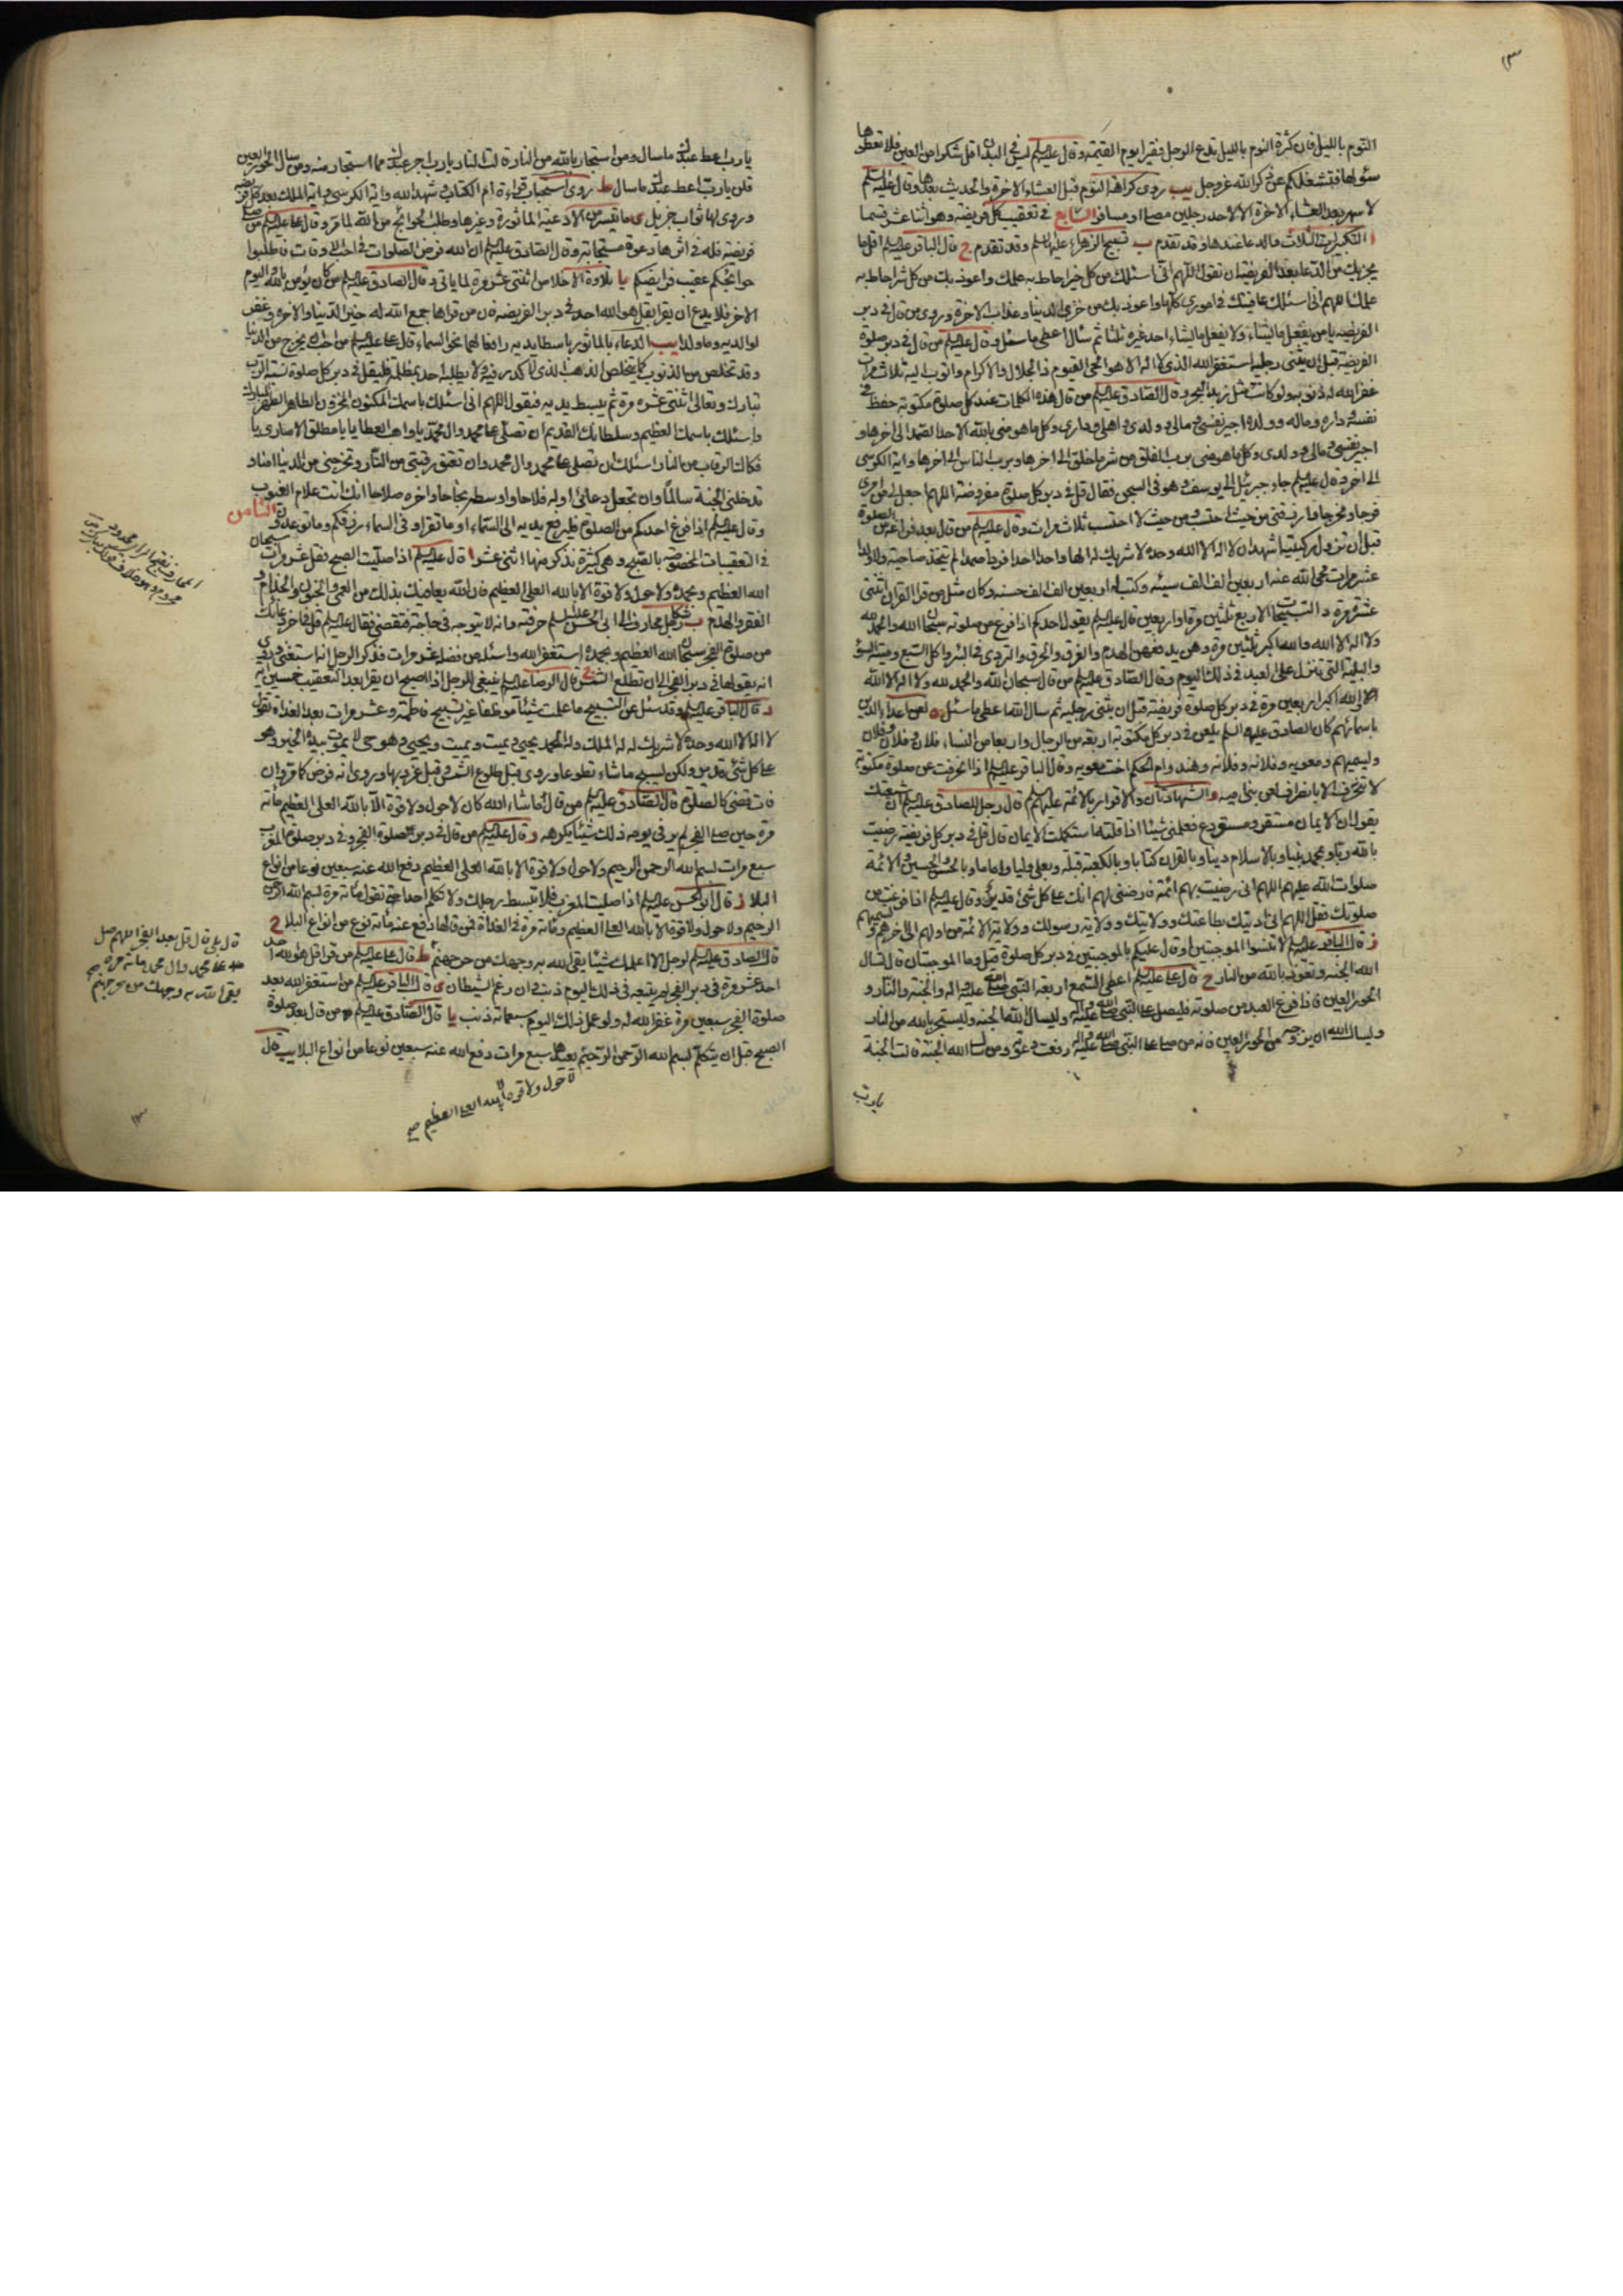 النوم بالليل فان كثرة النوم بالليل تدع الرجل فقيرا يوم القيمة وقال عليه السلم ليس في البدن اقل شكرا من العين فلا تعطوها
سؤلها فتشغلكم عن ذكر الله عز وجل يب روى كراهة النوم قبل العشاء الاخرة والحديث بعدها وقال عليه السلم
لا سهر بعد العشاء الاخرة الا لاحد رجلين مصل او مسافر السابع في تعقيب كل فريضة وهو اثنا عشر قسما
ا التكبيرات الثلاث والدعاء عندها وقد تقدم ب تسبيح الزهراء عليها السلم وقد تقدم ج قال الباقر عليه السلم اقل ما
يجزيك من الدعاء بعد الفريضة ان تقول اللهم اني اسئلك من كل خير احاط به علمك واعوذ بك من كل شر احاط به
علمك اللهم اني اسئلك عافيتك في اموري كلها واعوذ بك من خزي الدنيا وعذاب الاخرة وروي من قال في دبر
الفريضة يا من يفعل ما يشاء ولا يفعل ما يشاء احد غيره ثلثا ثم سال اعطي ما سئل وقال عليه السلم من قال في دبر صلوة
الفريضة قبل ان يثني رجليه استغفر الله الذي لا اله الا هو الحي القيوم ذا الجلال والاكرام واتوب اليه ثلاث مرات
غفر الله له ذنوبه ولو كانت مثل زبد البحر وقال الصادق عليه السلم من قال هذه الكلمات عند كل صلوة مكتوبة حفظ في
نفسه وداره وماله وولده اجير نفسي ومالي وولدي واهلي وداري وكل ما هو مني بالله الاحد الصمد الى اخرها و
اجير نفسي ومالي وولدي وكل ما هو مني برب الفلق من شر ما خلق الى اخرها وبرب الناس الى اخرها واية الكرسي
الى اخره وقال عليه السلم جاء جبرئيل الى يوسف وهو في السجن فقال قل في دبر كل صلوة مفروضة اللهم اجعل لي من امري
فرجا ومخرجا وارزقني من حيث احتسب ومن حيث لا احتسب ثلاث مرات وقال عليه السلم من قال بعد فراغه من الصلوة
قبل ان تزول ركبتيه اشهد ان لا اله الا الله وحده لا شريك له الها واحدا احدا فردا صمدا لم يتخذ صاحبة ولا ولدا
عشر مرات محى الله عنه اربعين الف الف سيئة وكتب له اربعين الف الف حسنة وكان مثل من قرا القران اثنتي
عشرة مرة د التسبيحات الاربع ثلثين مرة او اربعين قال عليه السلم يقول احدكم اذا فرغ من صلوته سبحان الله والحمد لله
ولا اله الا الله والله اكبر ثلثين مرة وهن يدفعن الهدم والغرق والحرق والتردي في البئر واكل السبع وميتة السوء
والبلية التي تنزل على العبد في ذلك اليوم وقال الصادق عليه السلم من قال سبحان الله والحمد لله ولا اله الا الله
والله اكبر اربعين مرة في دبر كل صلوة فريضة قبل ان يثني رجليه ثم سال الله اعطي ما سئل ه لعن اعداء الدين
باسمائهم كان الصادق عليه السلم يلعن في دبر كل مكتوبة اربعة من الرجال واربعا من النساء فلان وفلان وفلان
ويسميهم ومعويه وفلانه وفلانه وهند وام الحكم اخت معويه وقال الباقر عليه السلم اذا انحرفت عن صلوة مكتوبة
لا تنحرف الا بانصراف لعن بني امية و الشهادتان والاقرار بالائمة عليهم السلم قال رجل للصادق عليه السلم ان شيعتك
يقول ان الايمان مستقر ومستودع فعلمني شيئا اذا قلته استكملت الايمان قال قل في دبر كل فريضة رضيت
بالله ربا وبمحمد نبيا وبالاسلام دينا وبالقران كتابا وبالكعبة قبلة وبعلي وليا واماما وبالحسن والحسين والائمة
صلوات الله عليهم اللهم اني رضيت بهم ائمة فارضني لهم انك على كل شئ قدير وقال عليه السلم اذا فرغت من
صلوتك فقل اللهم اني ادينك بطاعتك وولايتك وولاية رسولك وولاية الائمة من اولهم الى اخرهم وتسميهم
ز قال الباقر عليه السلم لا تنسوا الموجبتين او قال عليكم بالموجبتين في دبر كل صلوة قيل وما الموجبتان قال تسال
الله الجنة وتعوذ بالله من النار ح قال علي عليه السلم اعطي السمع اربعة النبي صلى الله عليه واله والجنة والنار و
الحور العين فاذا فرغ العبد من صلوته فليصل على النبي صلى الله عليه واله وليسال الله الجنة وليستجر بالله من النار
وليسال الله ان يزوجه من الحور العين فانه من صلى على النبي صلى الله عليه واله رفعت دعوته ومن سال الله الجنة قالت الجنة
يا رب
يا رب اعط عبدك ما سال ومن استجار بالله من النار قالت النار يا رب اجر عبدك مما استجار منه ومن سال الحور العين
قلن يا رب اعط عبدك ما سال ط روى استحباب قراءة ام الكتاب وشهد الله واية الكرسي واية الملك بعد كل فريضة
وروي لها ثواب جزيل ي ما تيسر من الادعية الماثورة وغيرها وطلب الحوائج من الله لما مر وقال علي عليه السلم من صلى
فريضة فله في اثرها دعوة مستجابة وقال الصادق عليه السلم ان الله فرض الصلوات في احب الاوقات فاطلبوا
حوائجكم عقيب فرائضكم يا تلاوة الاخلاص اثنتي عشرة مرة لما ياتي وقال الصادق عليه السلم من كان يؤمن بالله واليوم
الاخر فلا يدع ان يقرا بقل هو الله احد في دبر الفريضة فان من قراها جمع الله له خير الدنيا والاخرة وغفر
له ولوالديه وما ولدا يب الدعاء بالماثور باسطا يديه رافعا لهما نحو السماء قال علي عليه السلم من احب ان يخرج من الدنيا
وقد تخلص من الذنوب كما يتخلص الذهب الذي لا كدر فيه ولا يطلبه احد بمظلمة فليقل في دبر كل صلوة نسبة الرب
تبارك وتعالى اثنتي عشرة مرة ثم يبسط يديه فيقول اللهم اني اسئلك باسمك المكنون المخزون الطاهر الطهر المبارك
واسئلك باسمك العظيم وسلطانك القديم ان تصلي على محمد وال محمد يا واهب العطايا يا مطلق الاسارى يا
فكاك الرقاب من النار اسئلك ان تصلي على محمد وال محمد وان تعتق رقبتي من النار وتخرجني من الدنيا امنا و
تدخلني الجنة سالما وان تجعل دعائي اوله فلاحا واوسطه نجاحا واخره صلاحا انك انت علام الغيوب
وقال عليه السلم اذا فرغ احدكم من الصلوة فليرفع يديه الى السماء او ما تقراو في السماء رزقكم وما توعدون الثامن
في التعقيبات المختصة بالصبح وهي كثيرة نذكر منها اثنى عشر ا قال عليه السلم اذا صليت الصبح فقل عشر مرات سبحان
الله العظيم وبحمده ولا حول ولا قوة الا بالله العلي العظيم فان الله يعافيك بذلك من العمى والجنون والجذام و
الفقر والهدم ب شكا رجل محارف الى ابي الحسن عليه السلم حرفته وانه لا يتوجه في حاجة فتقضى فقال عليه السلم قل في اخر دعائك
من صلوة الفجر سبحان الله العظيم وبحمده استغفر الله واسئله من فضله عشر مرات فذكر الرجل انه استغنى وروي
انه يقولها في دبر الفجر الى ان تطلع الشمس ج قال الرضا عليه السلم ينبغي للرجل اذا اصبح ان يقرا بعد التعقيب خمسين اية
د قال الباقر عليه السلم وقد سئل عن التسبيح ما علمت شيئا موظفا غير تسبيح فاطمة وعشر مرات بعد الغداة تقول
لا اله الا الله وحده لا شريك له له الملك وله الحمد يحيي ويميت ويميت ويحيي وهو حي لا يموت بيده الخير وهو
على كل شئ قدير ولكن ليسبح ما شاء تطوعا وروي قبل طلوع الشمس وقبل غروبها وروي انه فرض كما مر وان
فات تقضى كالصلوة ه قال الصادق عليه السلم من قال ما شاء الله كان لا حول ولا قوة الا بالله العلي العظيم مائة
مرة حين صلى الفجر لم ير في يومه ذلك شيئا يكرهه و قال عليه السلم من قال في دبر صلوة الفجر وفي دبر صلوة المغرب
سبع مرات بسم الله الرحمن الرحيم ولا حول ولا قوة الا بالله العلي العظيم دفع الله عنه سبعين نوعا من انواع
البلاء ز قال ابو الحسن عليه السلم اذا صليت المغرب فلا تبسط رجلك ولا تكلم احدا حتى تقول مائة مرة بسم الله الرحمن
الرحيم ولا حول ولا قوة الا بالله العلي العظيم ومائة مرة في الغداة فمن قالها دفع عنه مائة نوع من انواع البلاء ح
قال الصادق عليه السلم لرجل الا اعلمك شيئا يقي الله به وجهك من حر جهنم ط قال علي عليه السلم من قرا قل هو الله احد
احد عشر مرة في دبر الفجر لم يتبعه في ذلك اليوم ذنب وان رغم الشيطان ي قال الباقر عليه السلم من استغفر الله بعد
صلوة الفجر سبعين مرة غفر الله له ولو عمل ذلك اليوم سبعمائة ذنب يا قال الصادق عليه السلم من قال بعد صلوة
الصبح قبل ان يتكلم بسم الله الرحمن الرحيم يعيدها سبع مرات دفع الله عنه سبعين نوعا من انواع البلاء يب قال
لا حول ولا قوة الا بالله العلي العظيم صح
قال بلى قال قل بعد الفجر اللهم صل
على محمد وال محمد مائة مرة
يقي الله به وجهك من حر جهنم صح